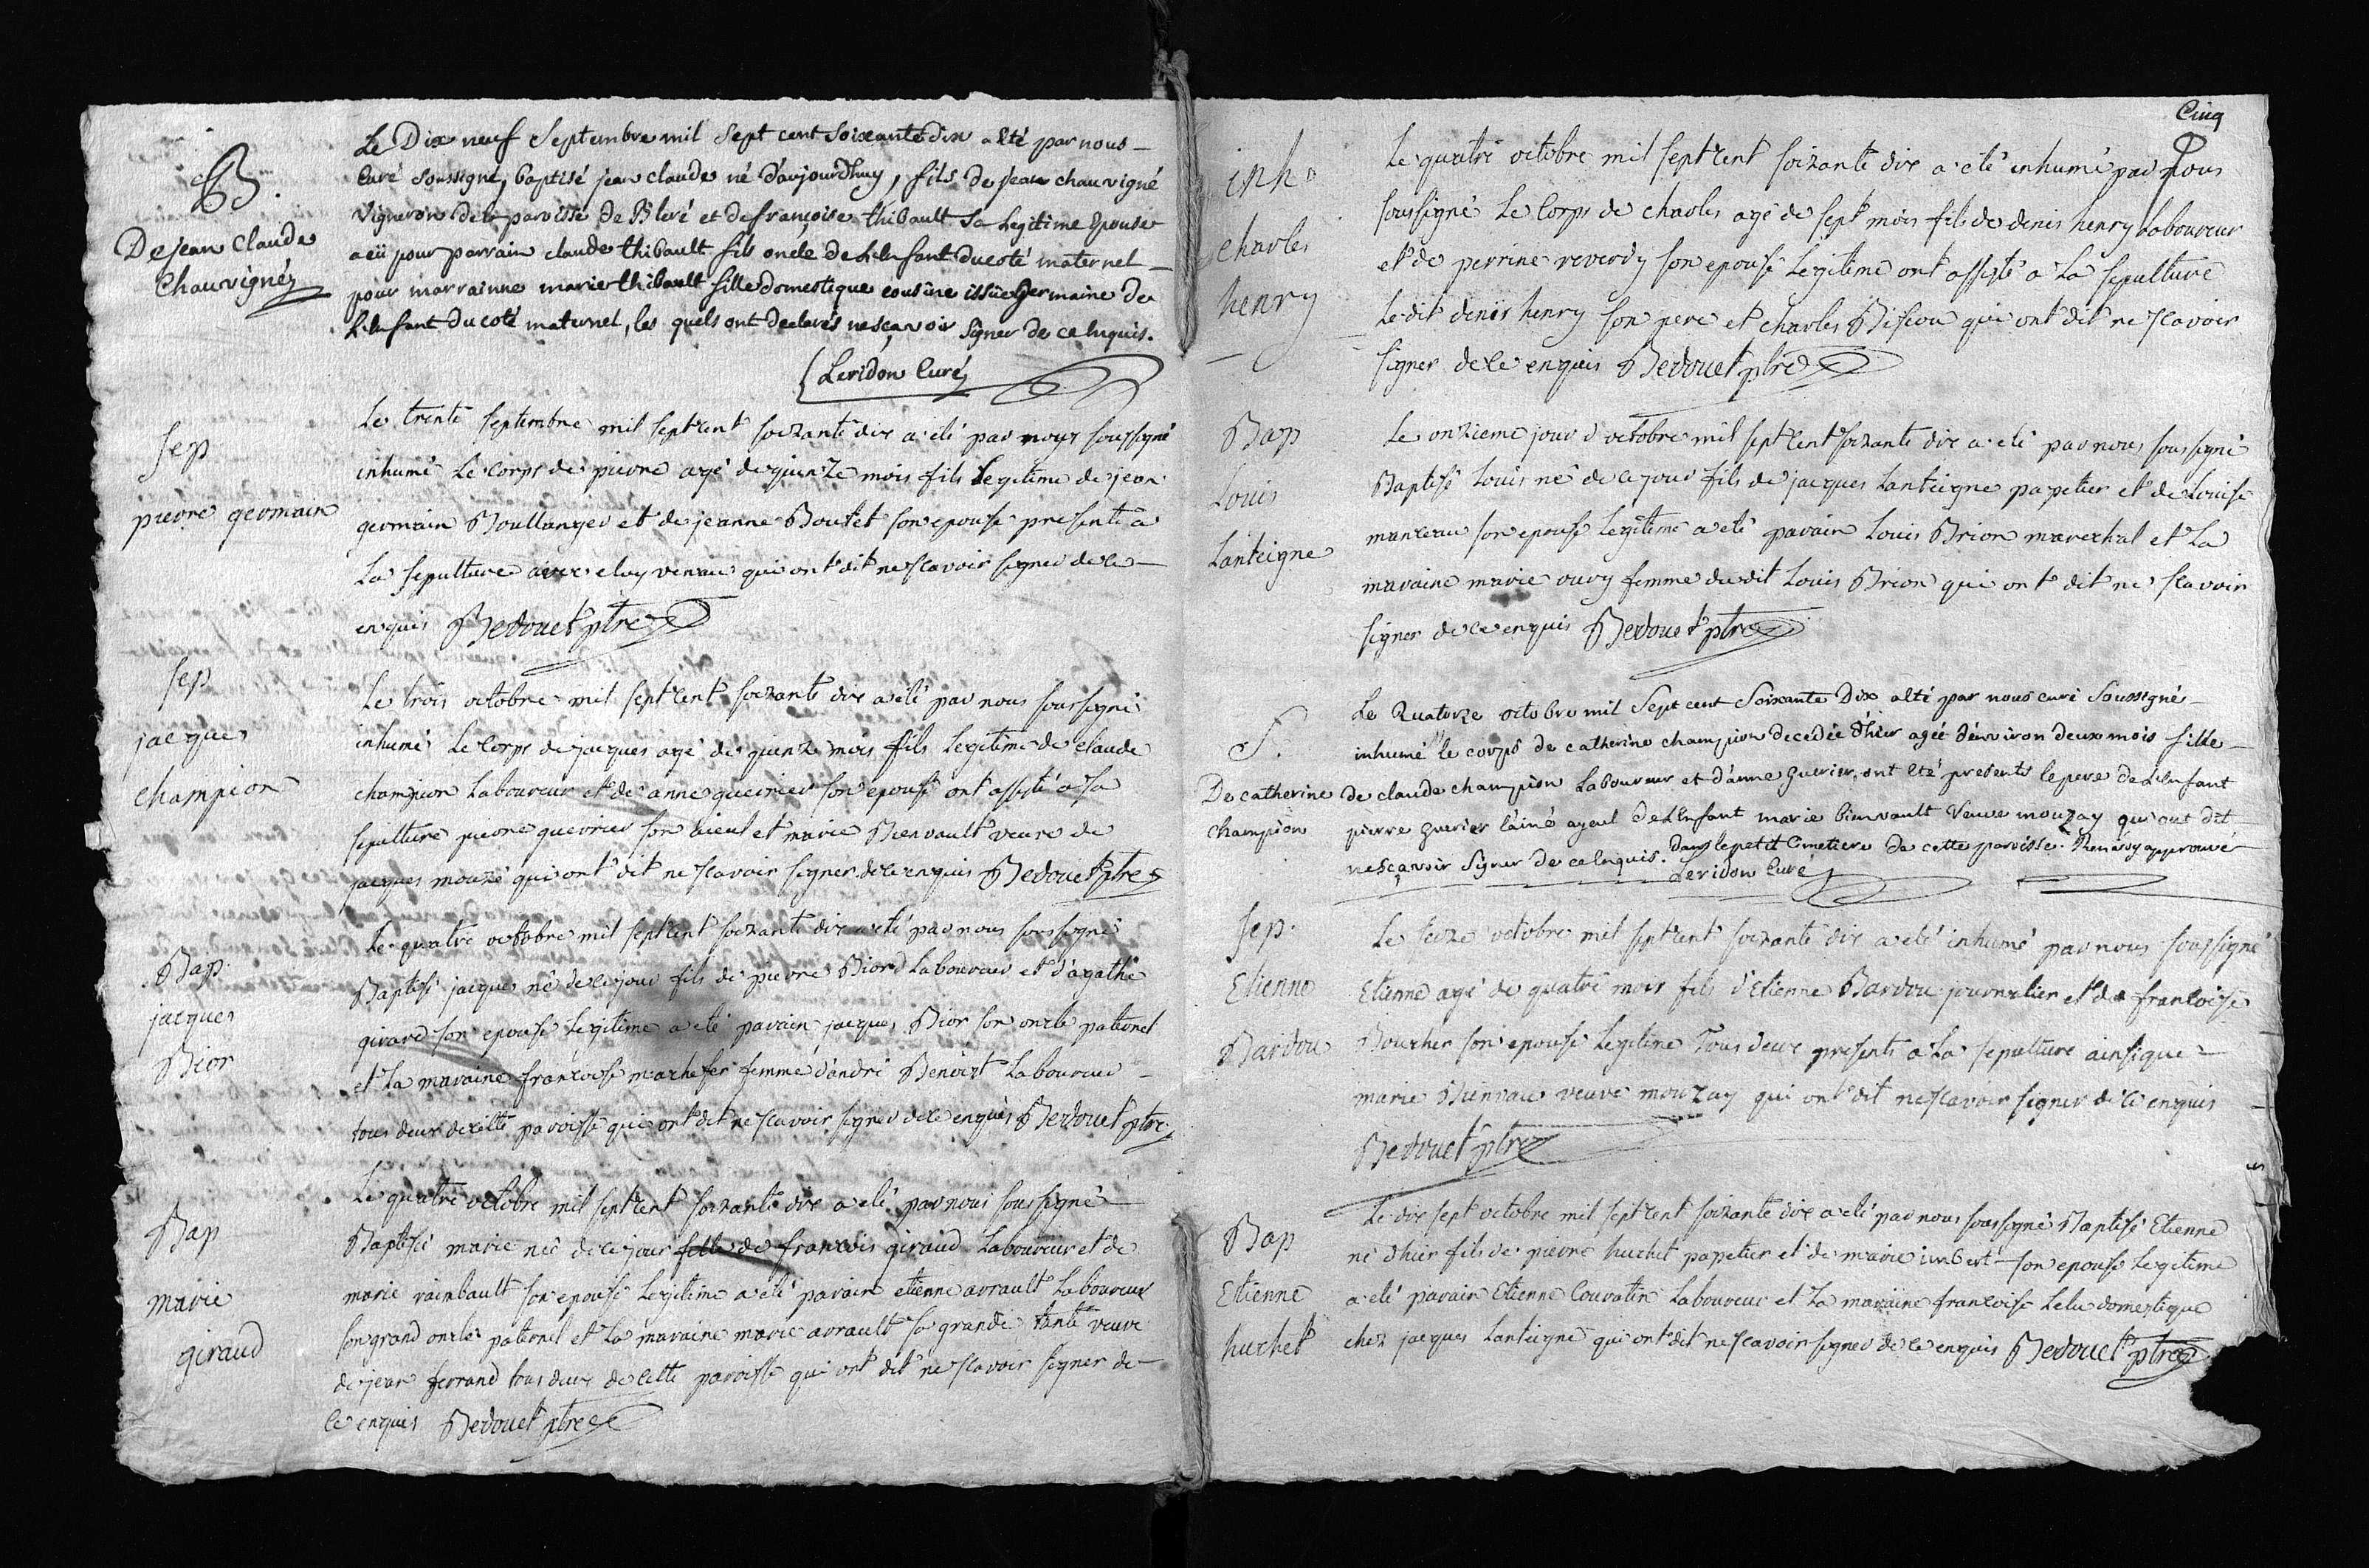 B.
De jean Claude
Chauvigné
Le Dix neuf Septembre mil Sept cent Soixante dix a Eté par nous
Curé Soussigné, baptisé jean claude né d'aujourdhuy, fils de jean chauvigné
Vigneron de la paroisse de Bleré et de françoise thibault Sa Legitime Epouse
a eü pour parrain claude thibault fils oncle de L'Enfant du coté maternel
pour marrainne marie thibault fille domestique cousine issüe Germaine de
L'Enfant du coté maternel, les quels ont declarés nesçavoir Signer de ce Enquis.
Leridon Curé
sep
pierre germain
Le trente septembre mil sept cent soixante dix a eté par nous soussigné
inhumé Le corps de pierre agé de quinze mois fils Legitime de jean
germain Boullanger et de jeanne Boutet son epouse presente a
La sepulture avec eloy venau qui ont dit ne scavoir signer de ce
enquis Bedouet ptre
sep
jacques
champion
Le trois octobre mil sept cent soixante dix a eté par nous soussigné
inhumé Le Corps de jacques agé de quinze mois fils Legitime de Claude
champion Laboureur et de anne guerrier son epouse ont assisté a sa
sepulture pierre guerrier son aieul et marie Bienvault veuve de
jacques mouzé qui ont dit ne scavoir signer de ce enquis Bedouet ptre
Bap
jacques
Bior
Le quatre octobre mil sept cent soixante dix a eté par nous soussigné
Baptisé jacques né de ce jour fils de pierre Biord Laboureur et d'agathe
girard son epouse Legitime a eté parain jacques Bior son oncle paternel
et La maraine francoise machefer femme d'andré Benoist Laboureur
tous deux de cette paroisse qui ont dit ne scavoir signer de ce enquis Bedouet ptre
Bap
marie
giraud
Le quatre octobre mil sept cent soixante dix a eté par nous soussigné
Baptisée marie née de ce jour fille de francois giraud Laboureur et de
marie raimbault son epouse Legitime a eté parain etienne avrault Laboureur
son grand oncle paternel et La maraine marie avrault sa grande tante veuve
de jean ferrand tous deux de cette paroisse qui ont dit ne scavoir signer de
ce enquis Bedouet ptre
Cinq
inh
charles
henry
Le quatre octobre mil sept cent soixante dix a eté inhumé par nous
soussigné Le Corps de charles agé de sept mois fils de denis henry Laboureur
et de perrine reverdy son epouse Legitime ont assisté a La sepulture
Le dit denis henry son pere et charles qui ont dit ne scavoir
signer de ce enquis Bedouet ptre
Bap
Louis
Lanteigne
Le onzieme jour d'octobre mil sept cent soixante dix a eté par nous soussigné
Baptisé Louis né de ce jour fils de jacques Lanteigne papetier et de Louise
manceau son epouse Legitime a eté parain Louis Brion marechal et La
maraine marie oury femme dudit Louis Brion qui ont dit ne scavoir
signer de ce enquis Bedouet ptre
S.
De catherine
champion
Le Quatorze octobre mil Sept cent Soixante Dix a Eté par nous curé Soussigné
inhumé le corps de catherine champion decedée d'hier agée d'environ deux mois fille
de claude champion Laboureur et d'anne guerier, ont Eté presents le pere de L'Enfant
pierre guerier l'ainé ayeul de L'Enfant marie bienvault Veuve mouzay qui ont dit
nesçavoir Signer de ce Enquis. dans le petit Cimetiere de cette paroisse. Renvoy approuvé
Leridon Curé
Sep.
Etienne
Bardou
Le seize octobre mil sept cent soixante dix a eté inhumé par nous soussigné
Etienne agé de quatre mois fils d'Etienne Bardou journalier et de francoise
Boucher son epouse Legitime Tous deux presents a La sepulture ainsi que
marie Bienvau veuve mouzay qui ont dit ne scavoir signer de ce enquis
Bedouet ptre
Bap
Etienne
huchet
Le dix sept octobre mil sept cent soixante dix a eté par nous soussigné Baptisé Etienne
né d'hier fils de pierre huchet papetier et de marie imbert son epouse Legitime
a eté parain Etienne Couratin Laboureur et La maraine francoise Lelu domestique
chez jacques Lanteigne qui ont dit ne scavoir signer de ce enquis Bedouet ptre